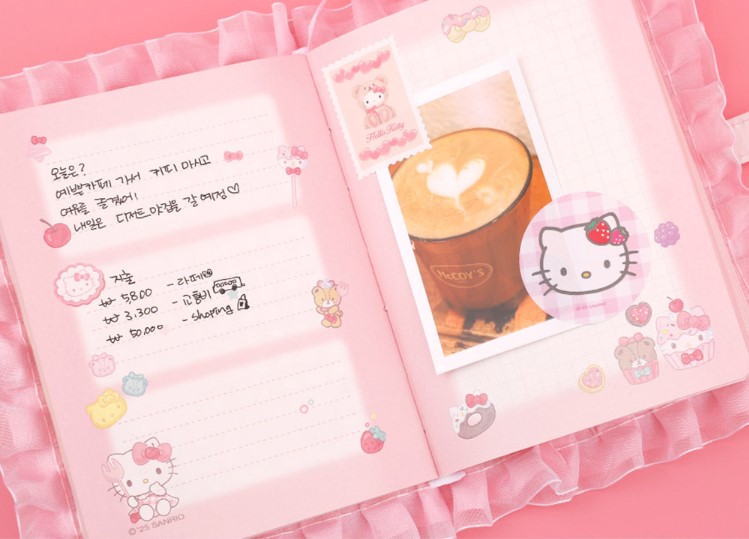 오늘은?
예쁜카페 가서 커피 마시고
여유를 즐겼어!
내일은 디저트 맛집을 갈 예정♡
지출
₩ 5800 - 라떼
₩ 3,300 - 교통비
₩ 50,000 - shoping
© '25 SANRIO
Hello Kitty
McCOY'S